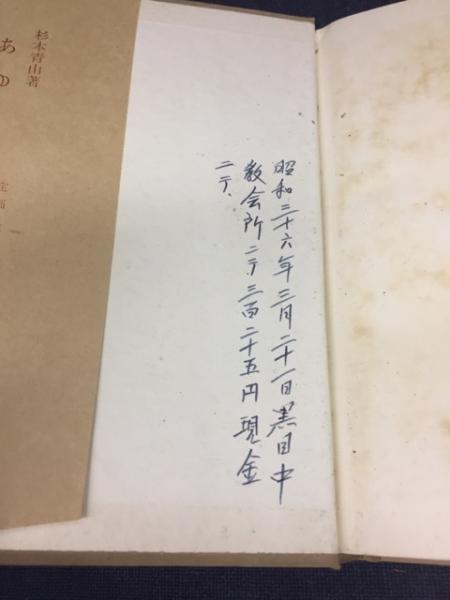 昭和三十六年三月二十一日黒田中
教会所ニテ、三百二十五円現金
ニテ、
杉本青山著
あゆ
定価